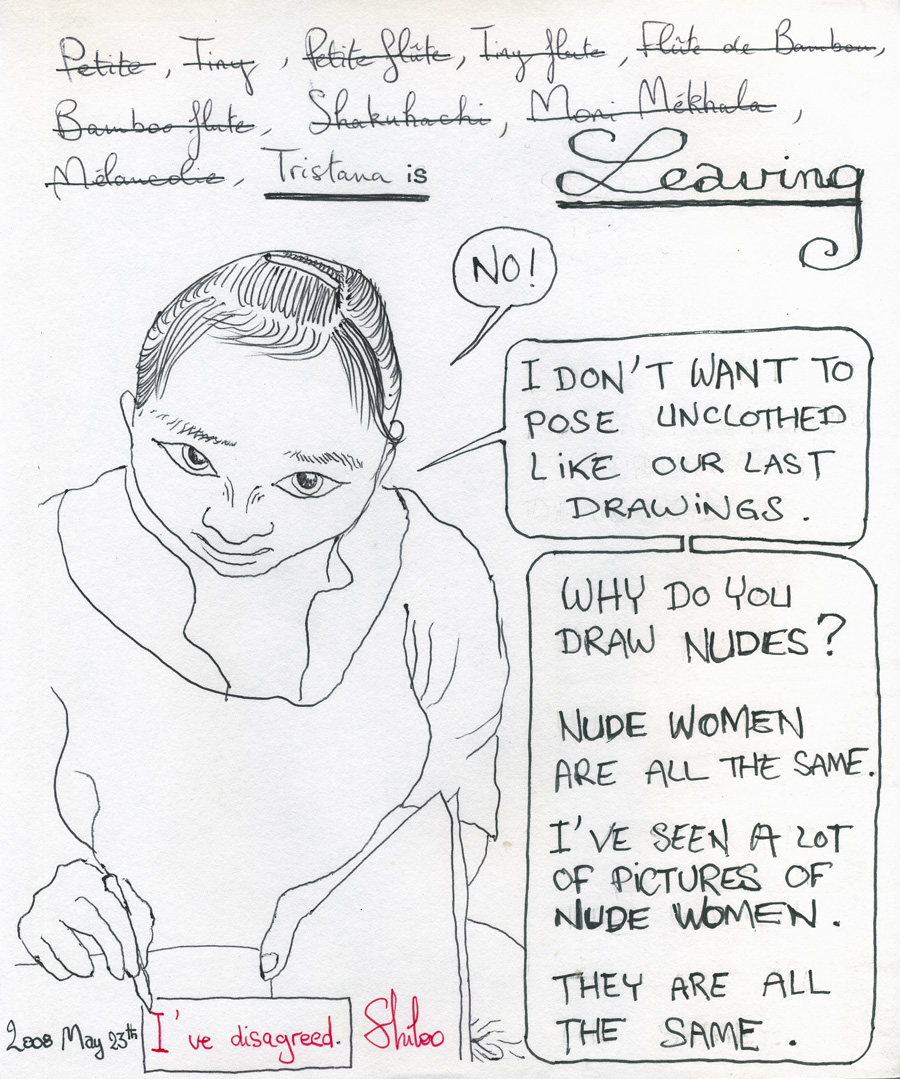 Petite, Tiny, Petite flûte, Tiny flute, Flûte de Bambou,
Bamboo flute, Shakuhachi, Moni Mékhala,
Mélancolie, Tristana is Leaving
NO!
I DON'T WANT TO
POSE UNCLOTHED
LIKE OUR LAST
DRAWINGS.
WHY DO YOU
DRAW NUDES?
NUDE WOMEN
ARE ALL THE SAME.
I'VE SEEN A LOT
OF PICTURES OF
NUDE WOMEN.
THEY ARE ALL
THE SAME.
2008 May 23th I've disagreed. Shiloo